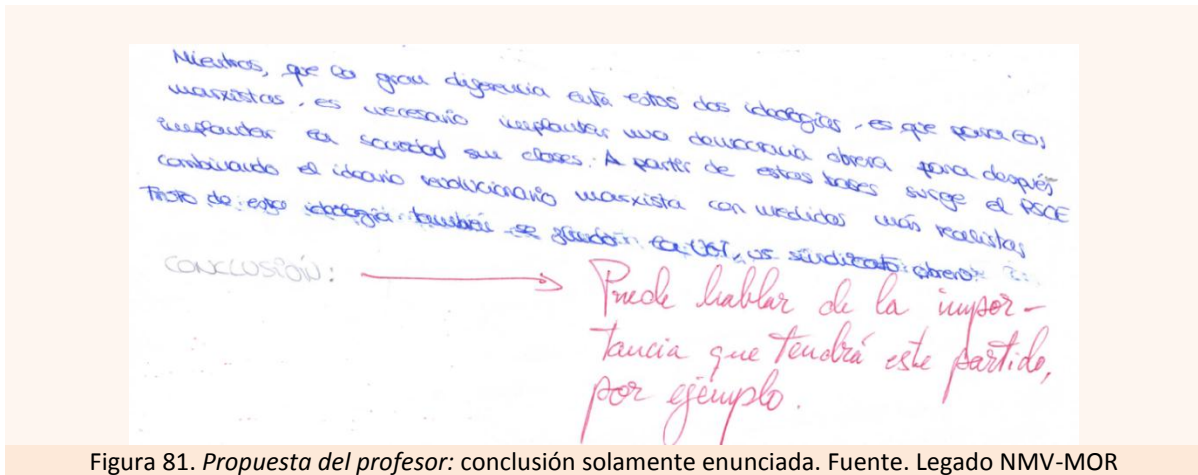 Mientras, que la gran diferencia entre estos dos ideologías, es que para los
marxistas, es necesario implantar una democracia obrera para después
implantar la sociedad sin clases. A partir de estas bases surge el PSOE
combinando el ideario revolucionario marxista con medidas más realistas
de esta ideología también se fundó la UGT, un sindicato obrero.
CONCLUSIÓN:
Puede hablar de la impor-
tancia que tendrá este partido,
por ejemplo.
Figura 81. Propuesta del profesor: conclusión solamente enunciada. Fuente. Legado NMV-MOR